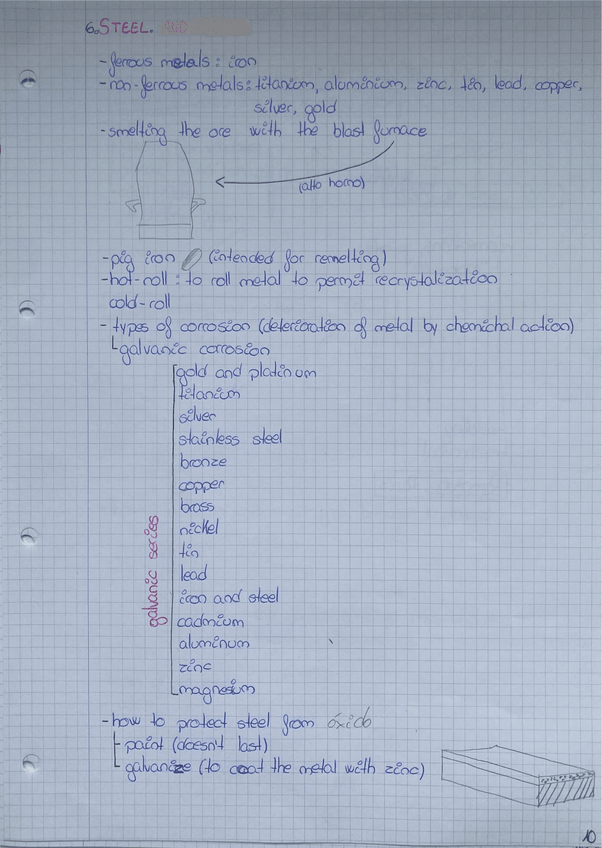 6. STEEL.
- ferrous metals: iron
- non-ferrous metals: titanium, aluminium, zinc, tin, lead, copper,
silver, gold
- smelting the ore with the blast furnace
(alto horno)
- pig iron (intended for remelting)
- hot-roll : to roll metal to permit recrystalization
cold-roll
- types of corrosion (deterioration of metal by chemichal action)
galvanic corrosion
gold and platinum
titanium
silver
stainless steel
bronze
copper
brass
nickel
tin
lead
iron and steel
cadmium
aluminum
zinc
magnesium
galvanic series
- how to protect steel from óxido
paint (doesn't last)
galvanize (to coat the metal with zinc)
10